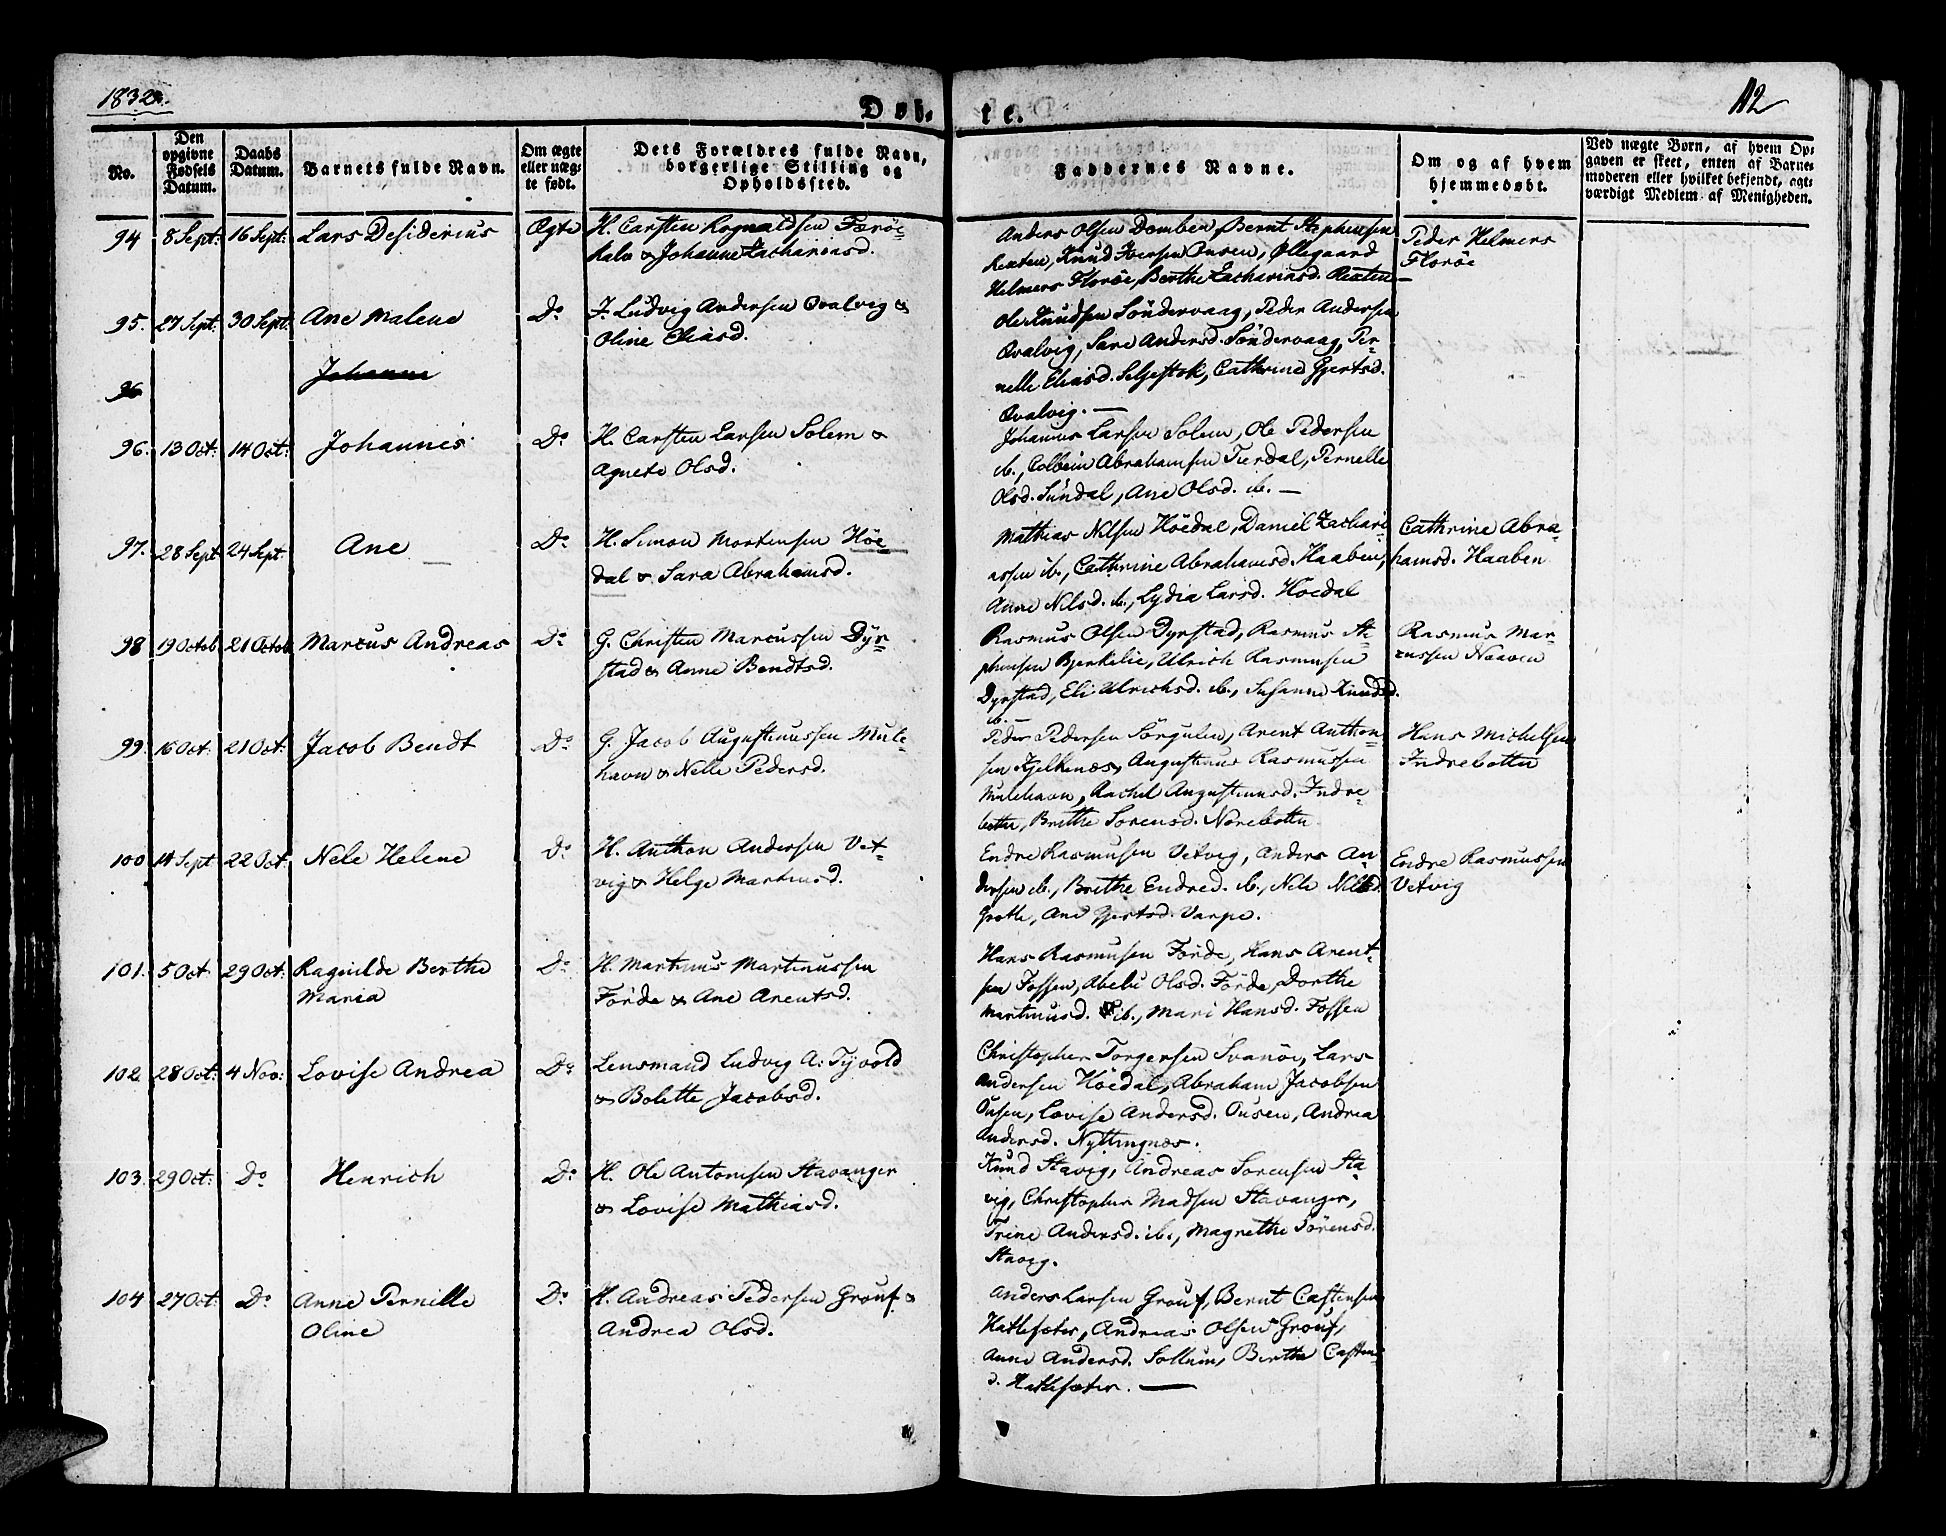 1832.
Døb-
te.
112
No.
Den
opgivne
Fødsels
Datum.
Daabs
Datum.
Barnets fulde Navn.
Om ægte
eller uæg-
te født.
Dets Forældres fulde Navn,
borgerlige Stilling og
Opholdssted.
Faddernes Navne.
Om og af hvem
hjemmedøbt.
Ved uægte Børn, af hvem Op-
gaven er skeet, enten af Barne-
moderen eller hvilket bekjendt, agt-
værdigt Medlem af Menigheden.
94 8 Sept: 16 Sept: Lars Desiderius Ægte H. Carsten Rognaldsen Færöe-
halv & Johanne Zachariasd.
Anders Olsen Domben, Bernt Stephensen
Rexten, Knud Iversen Ousen, Øllegaard
Helmers Floröe, Berthe Zachariasd. Rexten
Peder Helmers
Floröe
95. 27 Sept: 30 Sept: Ane Malene Do F. Ludvig Andersen Qvalvig &
Oline Eliasd.
Ole Knudsen Söndervaag, Peder Andersen
Qvalvig, Sare Andersd. Söndervaag, Per-
nelle Eliasd. Seljestok, Cathrine Gjertsd.
Qvalvig. —
96 Johanne
96. 13 Oct: 14 Oct: Johannes Do H. Carsten Larsen Solem &
Agnete Olsd.
Johannes Larsen Solem, Ole Pedersen
ib., Colbein Abrahamsen Tierdal, Pernelle
Olsd. Sundal, Ane Olsd. ib. —
97. 28 Sept 24 Sept: Ane Do H. Simon Mortensen Höe-
dal & Sara Abrahamsd.
Mathias Nilsen Höedal, Daniel Zachari-
assen ib., Cathrine Abrahamsd. Haaben,
Anne Nilsd. ib., Lydia Larsd. Höedal
Cathrine Abra-
hamsd. Haaben
98 19 Octob 21 Octob Marcus Andreas Do G. Christen Marcussen Dyr-
stad & Anne Bendtsd.
Rasmus Olsen Dyrstad, Rasmus Ste-
phensen Bjerkelie, Ulrich Rasmusen
Dyrstad, Eli Ulrichsd. ib., Susanne Knudsd.
ib. —
Rasmus Mar-
cussen Naaven
99. 16 Oct: 21 Oct: Jacob Bendt Do G. Jacob Augustinussen Mule-
havn & Nelle Pedersd.
Peder Pedersen Sörgulen, Arent Anthon-
sen Kjelkenæs, Augustinus Rasmussen
Mulehavn, Rachel Augustinusd. Indre-
botten, Brithe Sorensd. Norebotten
Hans Michelsen
Indrebotten
100 14 Sept 22 Oct: Nele Helene Do H. Anthon Andersen Vet-
vig & Helge Martinusd.
Endre Rasmusen Vetvig, Anders An-
dersen ib., Brithe Endred. ib., Nele Nilsd.
Grotle, Ane Gjertsd. Varpe.
Endre Rasmussen
Vetvig
101. 5 Oct 29 Oct: Ragnilde Berthe
Maria Do H. Martinus Martinussen
Förde & Ane Arentsd.
Hans Rasmusen Förde, Hans Arent-
sen Fossen, Abelu Olsd. Förde, Dorthe
Martinusd. ib., Mari Hansd. Fossen
102 28 Oct: 4 Nov: Lovise Andrea Do Lensmand Ludvig A: Tyvold
& Bolette Jacobsd.
Christopher Torgersen Svanöe, Lars
Andersen Höedal, Abraham Jacobsen
Ousen, Lovise Andersd. Ousen, Andrea
Andersd. Nyttingnæs.
103. 29 Oct: Do Henrich Do H. Ole Antonisen Stavanger
& Lovise Mathiasd.
Knud Stavig, Andreas Sorensen Sta-
vig, Christopher Madsen Stavanger,
Trine Andersd. ib., Magrethe Sörensd.
Stavig.
104 27 Oct: Do Anne Pernille
Oline Do H. Andreas Pedersen Grouf &
Andrea Olsd.
Anders Larsen Grouf, Bernt Castensen
Hatlesæter, Andreas Olsen Grouf,
Anne Andersd. Sollum, Berthe Casten-
d. Hatlesæter. —